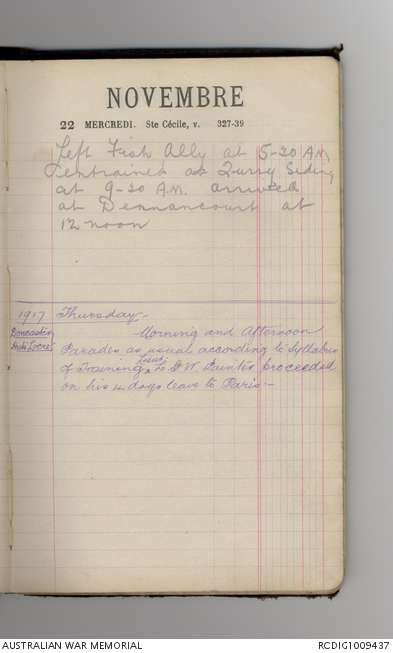 NOVEMBRE
22 MERCREDI. Ste Cécile, v. 327-39
Left Fish Ally at 5-20 A.M.
Rentrained at Quarry Siding
at 9-20 A.M. arrived
at Dernancourt at
12 noon
1917 Thursday-
Doncaster
Huts Locre
Morning and Afternoon
Parades as usual according to Syllabus
of Training, Lieut W. Painter proceeded
on his 4 days leave to Paris-
AUSTRALIAN WAR MEMORIAL
RCDIG1009437